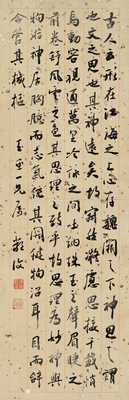 古人云形在江海之上心存魏闕之下神思之謂
也文之思也其神遠矣故寂然凝慮思接千載悄
焉動容視通萬里吟詠之間吐納珠玉之聲眉睫之
前卷舒風雲之色其思理之致乎故思理為妙神與
物游神居胸臆而志氣統其關鍵物沿耳目而辭
令管其樞機